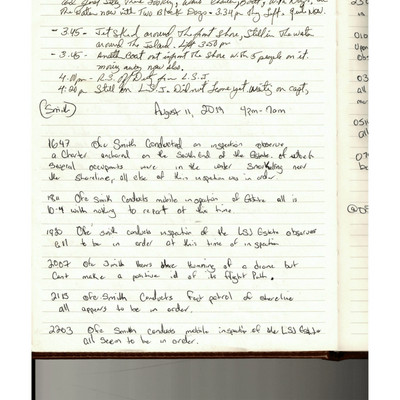 the water now with Two Black Dogs. 3:34 pm
- 3:45 - Jet Skid around The front shore, Still in The water
around The Island. Left 3:50 pm
- 3:45 - Another Boat out infront The Shore with 5 people on it.
moving away now also,
4:00pm - R.S. off Duty from L.S.J
4:00 pm Still on L.S.J. Did not Leave yet. waiting on capt,
(Smith) August 11, 2019 4pm-7am
1647 Ofc Smith Conducted an inspection observe
a Charter anchored on the South end of the Estate. of which
several occupants were in the water Snorkeling near
the Shoreline, all else of this inspection was in order.
Ofc Smith Conducts mobile inspection of Estate all is
10-4 with nothing to report at this time.
1930 Ofc Smith conducts inspection of the LSJ Estate observes
all to be in order at this time of inspection
2007 Ofc Smith Hears the Humming of a drone but
Cant make a positive id of its flight Path.
2115 Ofc Smith Conducts foot patrol of shoreline
all appears to be in order.
2203 Ofc Smith conducts mobile inspection of the LSJ Estate
all Seem to be in order.